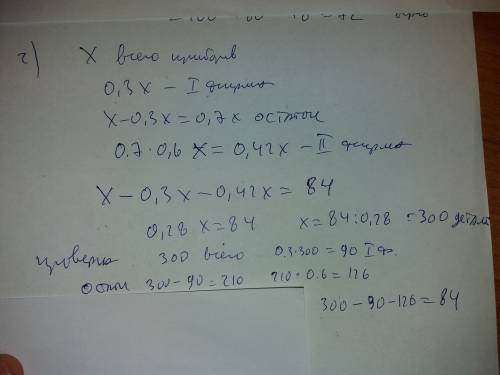 2) X всего приборов
0,3x – I фирма
X – 0,3x = 0,7x остаток
0.7 · 0,6 x = 0,42x – II фирма
X – 0,3x – 0,42x = 84
0,28 x = 84 x = 84 : 0,28 = 300 детал
проверка 300 всего 0.3·300 = 90 I ф.
остат 300 – 90 = 210 210 · 0.6 = 126
300 – 90 – 126 = 84